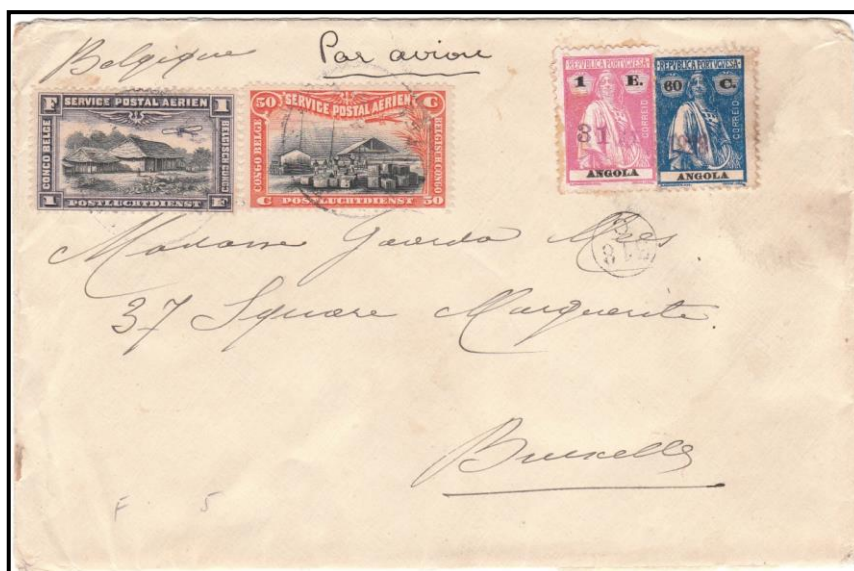 Belgique
Par avion
F SERVICE POSTAL AERIEN 1
CONGO BELGE
BELGISCH CONGO
1 POSTLUCHTDIENST F
50 SERVICE POSTAL AERIEN C
CONGO BELGE
BELGISCH CONGO
C POSTLUCHTDIENST 50
REPVBLICA PORTVGVESA
1 E.
CORREIO
ANGOLA
REPVBLICA PORTVGVESA
60 C.
CORREIO
ANGOLA
31
Madame
37 Square Marguerite.
Bruxelles
F 5